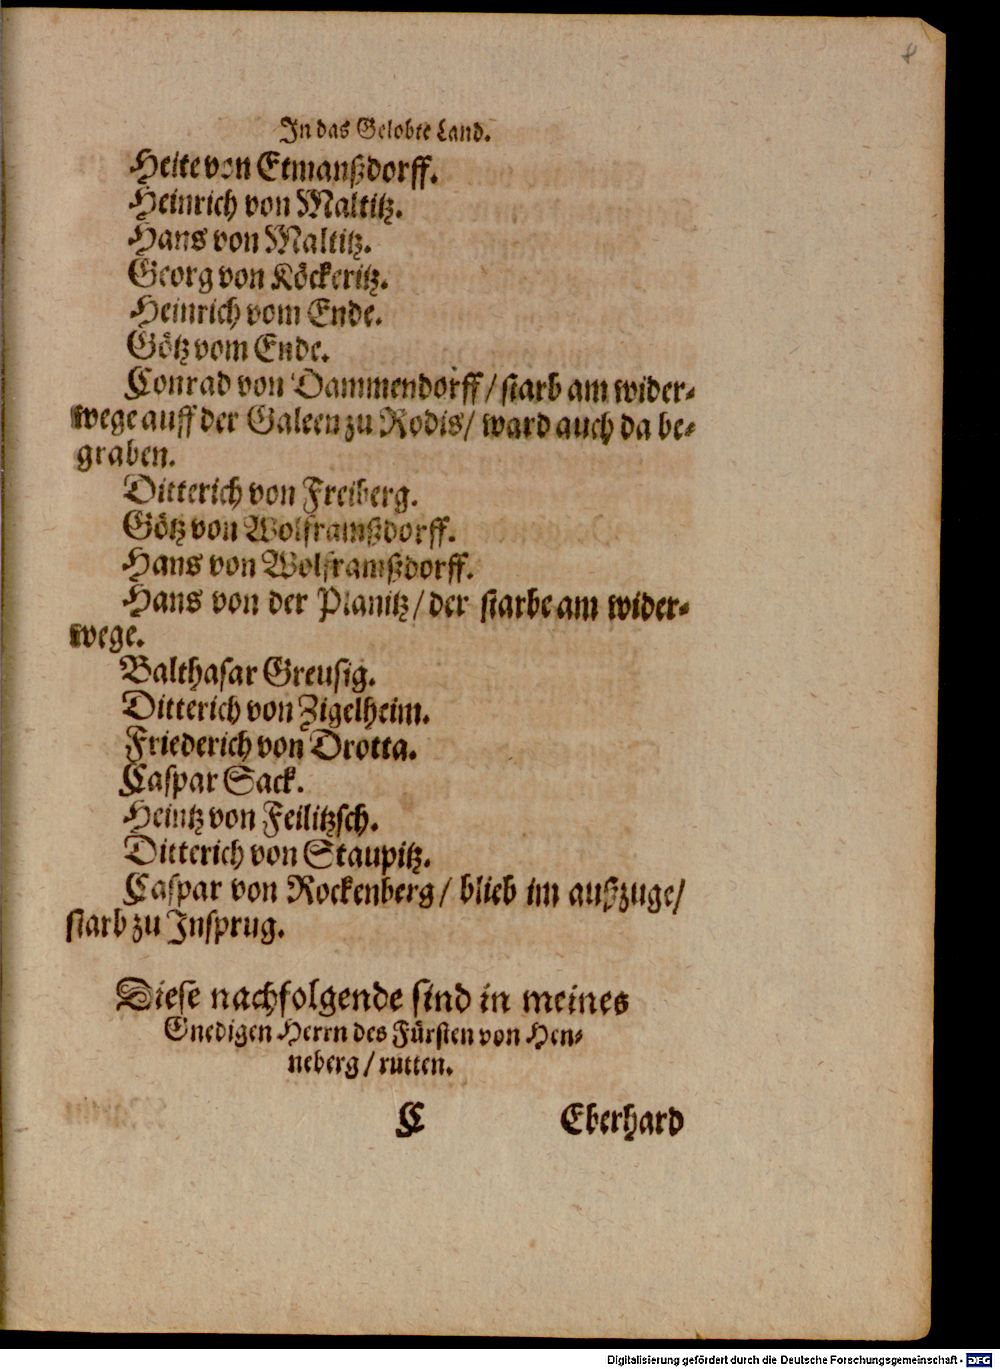 8
In das Gelobte Land.
Heite von Etmanßdorff.
Heinrich von Maltitz.
Hans von Maltitz.
Georg von Köckeritz.
Heinrich vom Ende.
Götz vom Ende.
Conrad von Dammendorff / starb am wider-
wege auff der Galeen zu Rodis / ward auch da be-
graben.
Ditterich von Freiberg.
Götz von Wolframßdorff.
Hans von Wolframßdorff.
Hans von der Planitz / der starbe am wider-
wege.
Balthasar Greusig.
Ditterich von Zigelheim.
Friederich von Drotta.
Caspar Sack.
Heintz von Feilitzsch.
Ditterich von Staupitz.
Caspar von Rockenberg / blieb im außzuge /
starb zu Insprug.
Diese nachfolgende sind in meines
Gnedigen Herrn des Fürsten von Hen-
neberg / rutten.
C Eberhard
Digitalisierung gefördert durch die Deutsche Forschungsgemeinschaft - DFG